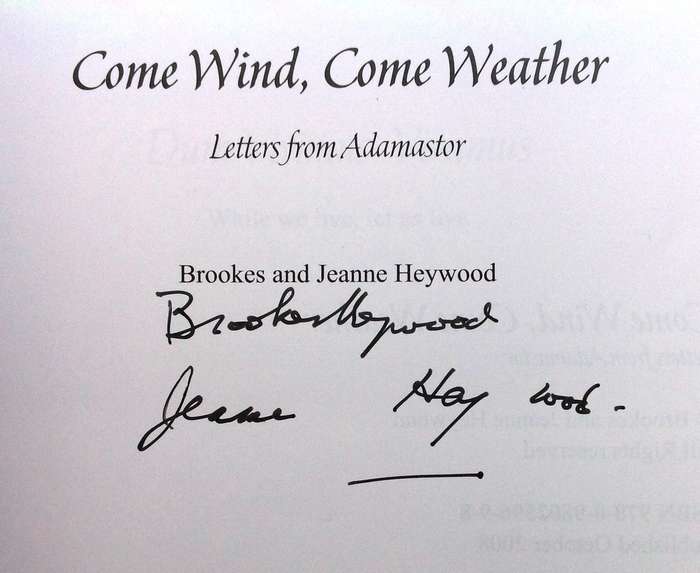 Come Wind, Come Weather
Letters from Adamastor
Brookes and Jeanne Heywood
Brookes Heywood
Jeanne Heywood